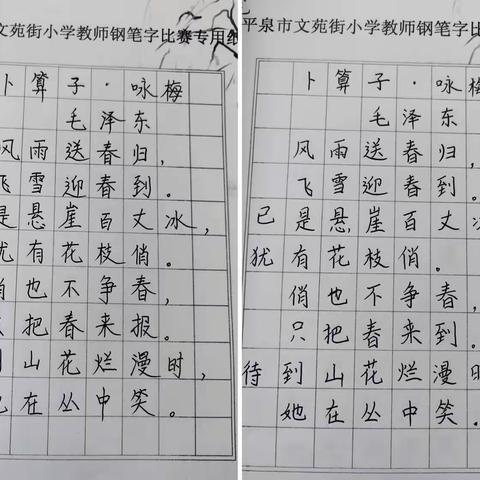 文苑街小学教师钢笔字比赛专用纸
卜算子·咏梅
毛泽东
风雨送春归,
飞雪迎春到。
是悬崖百丈冰,
犹有花枝俏。
俏也不争春,
把春来报。
山花烂漫时,
在丛中笑。
平泉市文苑街小学教师钢笔字比
卜算子·咏梅
毛泽东
风雨送春归,
飞雪迎春到。
已是悬崖百丈冰
犹有花枝俏。
俏也不争春,
只把春来到。
待到山花烂漫时
她在丛中笑。